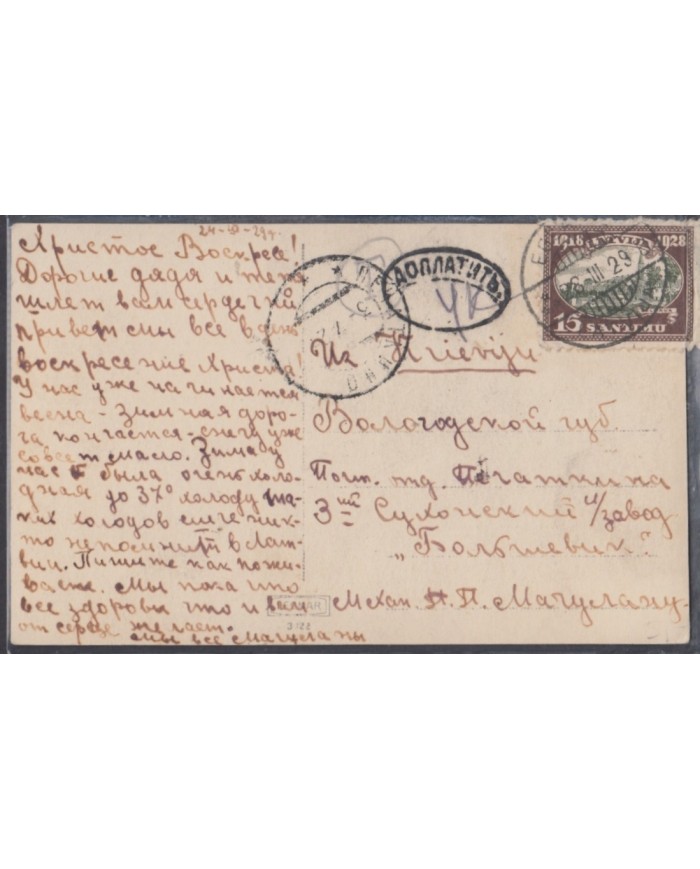 24-III-29г.
Христос Воскресе!
Дорогие дядя и тетя
шлем вам сердечный
привет мы все в день
воскресение Христа!
У нас уже начинается
весна - зимная доро-
га кончается - снегу уже
совсем мало. Зима у
нас была очень холо-
дная до 37° холоду та-
ких холодов еще ник-
то непомнит в Лат-
вии. Пишите как пожи-
ваете. Мы пока что
все здоровы что и вам
от сердце желаем.
Мы все Магуланы
ДОПЛАТИТЬ
1918 LATVIJA 1928
15 SANTIMU
III 29
Из
Вологодской губ
Почт. отд. Печаткина
3ий Сухонский ц/завод
„Большевик"
Механ. П. Магулану